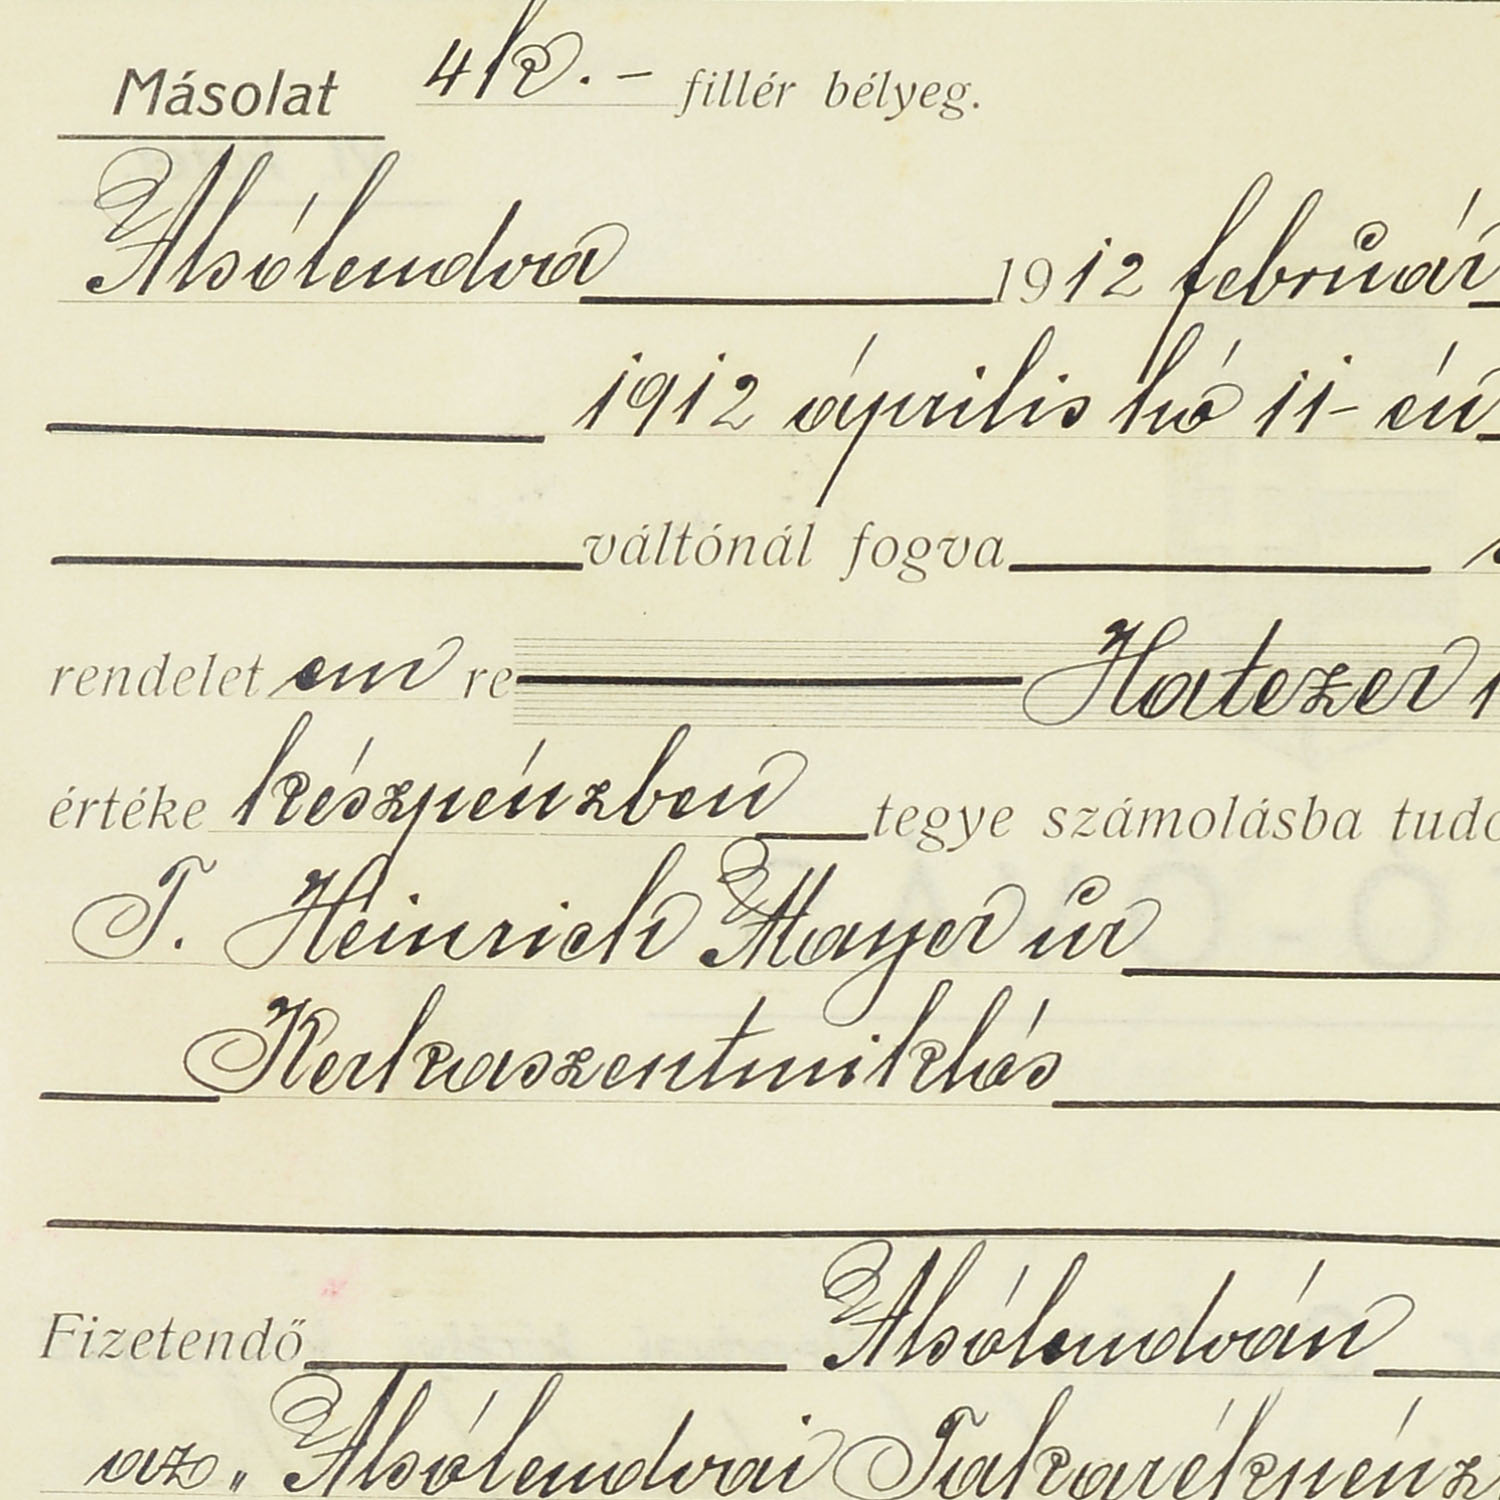 Másolat 4K.- fillér bélyeg.
Alsólendva 1912 február
1912 április hó 11-én
váltónál fogva
rendelet em re Hatezer
értéke készpénzben tegye számolásba tudo
T. Heinrich Mayer úr
Kerkaszentmiklós
Fizetendő Alsólendván
az „Alsólendvai Takarékpénz